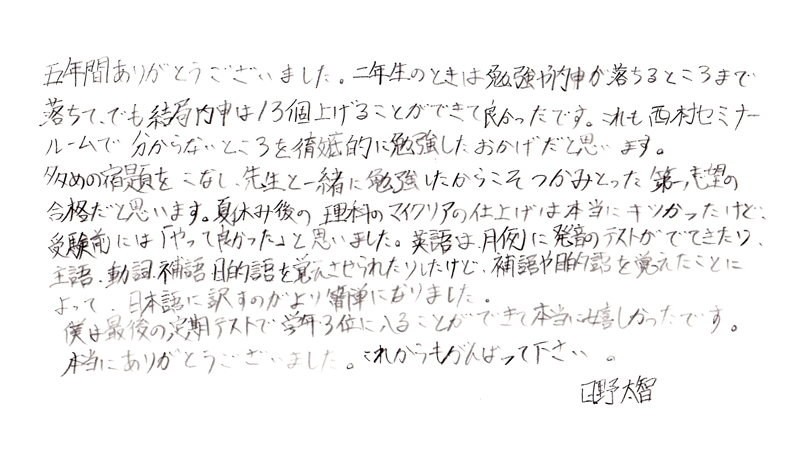 五年間ありがとうございました。二年生のときは勉強や内申が落ちるところまで
落ちて、でも結局内申は13個上げることができて良かったです。これも西村セミナー
ルームで分からないところを徹底的に勉強したおかげだと思います。
多めの宿題をこなし、先生と一緒に勉強したからこそつかみとった第一志望の
合格だと思います。夏休み後の理科のマイクリアの仕上げは本当にキツかったけど、
受験前には「やって良かった」と思いました。英語は、月例に発音のテストがでてきたり、
主語、動詞、補語、目的語を覚えさせられたりしたけど、補語や目的語を覚えたことに
よって、日本語に訳すのがより簡単になりました。
僕は最後の定期テストで学年3位に入ることができて本当に嬉しかったです。
本当にありがとうございました。これからもがんばって下さい。
日野太智